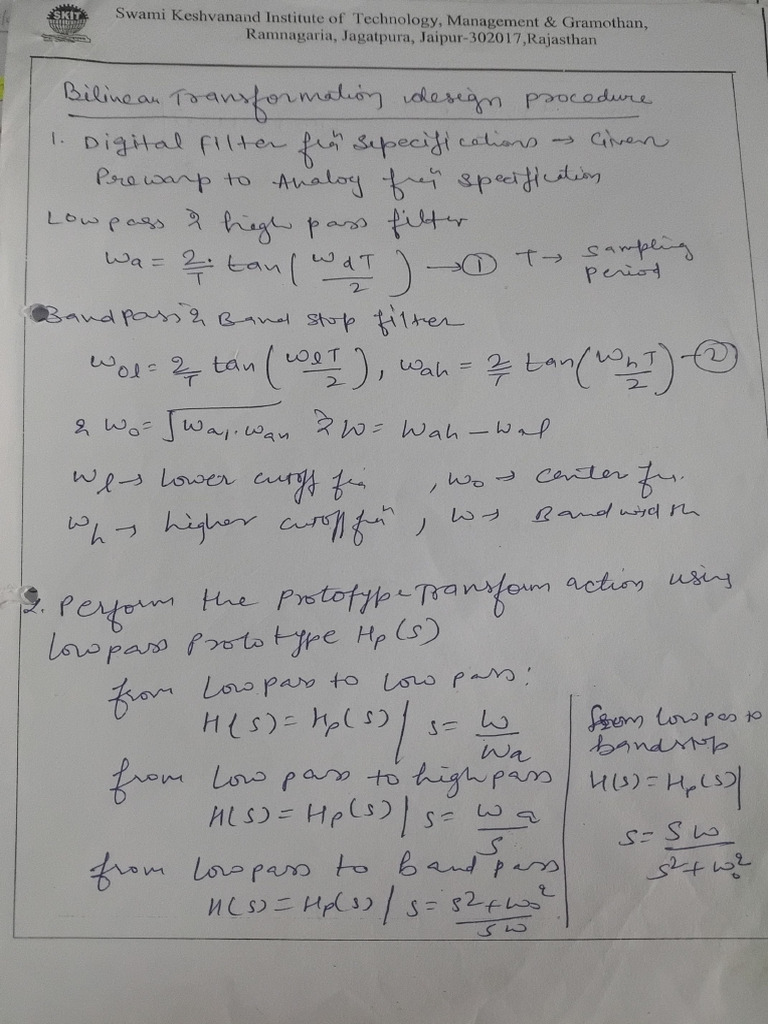 SKIT
Swami Keshvanand Institute of Technology, Management & Gramothan,
Ramnagaria, Jagatpura, Jaipur-302017, Rajasthan
Bilinear Transformation design procedure
1. Digital Filter freⁿ specifications → Given
Prewarp to Analog freⁿ specification
Low pass & high pass filter
Wa = 2/T tan(WdT/2) → ① T → sampling
period
Bandpass & Band stop filter
Wol = 2/T tan(WlT/2), Wah = 2/T tan(WhT/2) → ②
& Wo = √Wal.Wah & W = Wah – Wal
Wl → Lower cutoff fre , Wo → center fre.
Wh → higher cutoff freⁿ , W → Bandwidth
2. Perform the Prototype Transform action using
lowpass prototype Hp(s)
from Low pass to Low pass:
H(s) = Hp(s) | s = W/Wa
from low pass to high pass
H(s) = Hp(s) | s = Wa/s
from lowpass to band pass
H(s) = Hp(s) | s = s²+Wo²/sW
from low pass to
bandstop
H(s) = Hp(s)|
s = sW/s²+Wo²